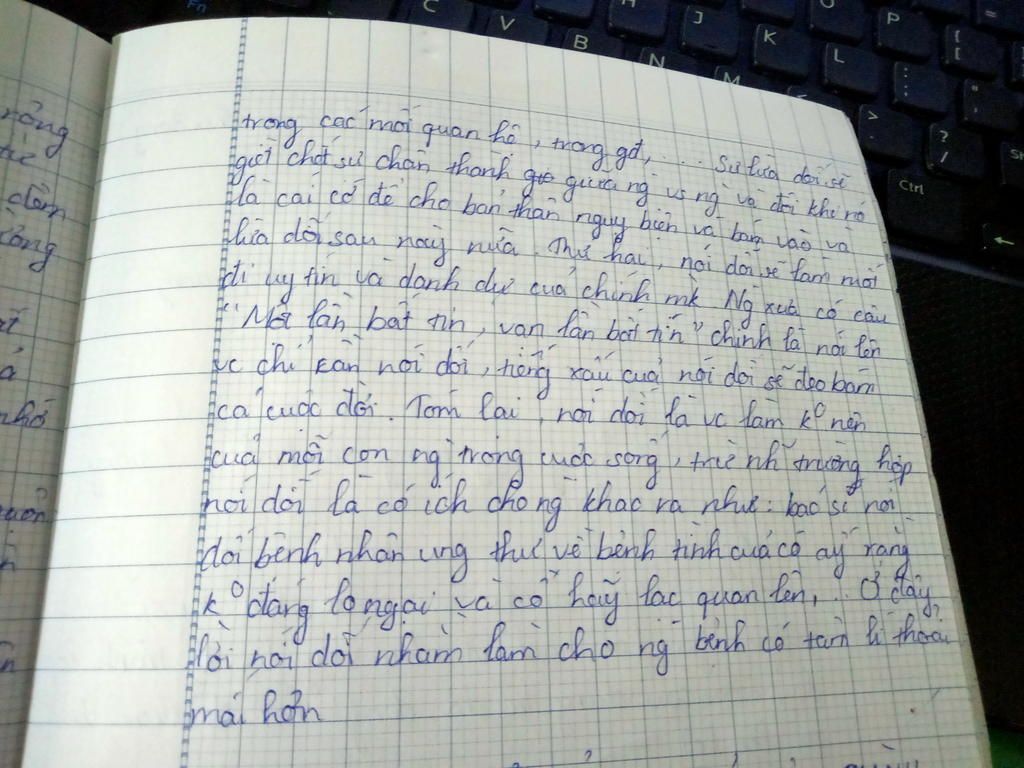 trong các mối quan hệ, trong gđ, ... Sự lừa dối sẽ
giết chết sự chân thành giữa ng vs ng và đôi khi nó
là cái cớ để cho bản thân ngụy biện và bám vào và
lừa dối sau này nữa. Thứ hai, nói dối sẽ làm mất
đi uy tín và danh dự của chính mk. Ng xưa có câu
"Một lần bất tín, vạn lần bất tín" chính là nói lên
vc chỉ 1 lần nói dối, tiếng xấu của nói dối sẽ đeo bám
cả cuộc đời. Tóm lại, nói dối là vc làm k⁰ nên
của mỗi con ng trong cuộc sống, trừ nh~ trường hợp
nói dối là có ích cho ng khác ra như: bác sĩ nói
dối bệnh nhân ung thư về bệnh tình của cô ấy rằng
k⁰ đáng lo ngại và cô hãy lạc quan lên,... Ở đây,
lời nói dối nhằm làm cho ng bệnh có tâm lí thoải
mái hơn
rông
đêm
công
nhớ